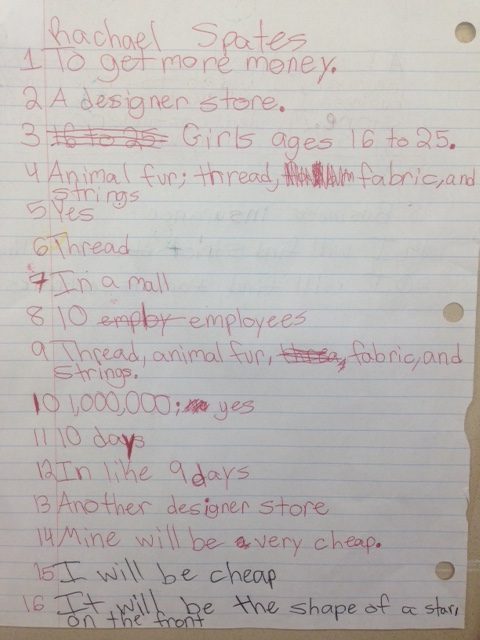 Rachael Spates
1 To get more money.
2 A designer store.
3 16 to 25 Girls ages 16 to 25.
4 Animal fur; thread, fabric, and
strings
5 Yes
6 Thread
7 In a mall
8 10 employ employees
9 Thread, animal fur, threa, fabric, and
strings.
10 1,000,000; yes
11 10 days
12 In like 9 days
13 Another designer store
14 Mine will be a very cheap.
15 I will be cheap
16 It will be the shape of a star,
on the front